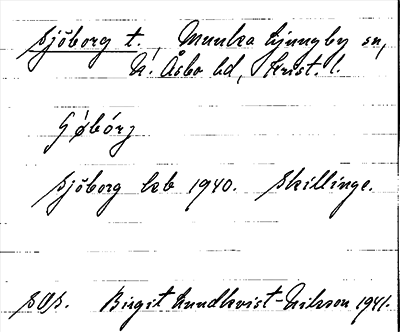 Sjöborg t., Munka Ljungby sn,
N. Åsbo hd, Krist. l.
Sjöborg kb 1940. Skillinge.
SOS. Birgit Lundkvist-Nilsson 1941.